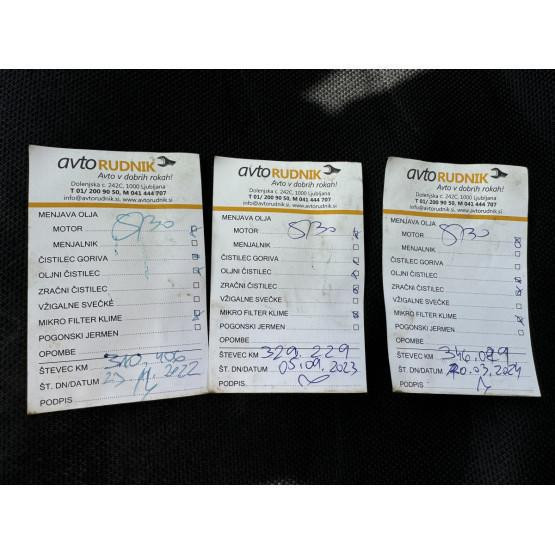 avtoRUDNIK
Avto v dobrih rokah!
Dolenjska c. 242C, 1000 Ljubljana
T 01/ 200 90 50, M 041 444 707
info@avtorudnik.si, www.avtorudnik.si
MENJAVA OLJA
MOTOR 5/30
MENJALNIK
ČISTILEC GORIVA
OLJNI ČISTILEC
ZRAČNI ČISTILEC
VŽIGALNE SVEČKE
MIKRO FILTER KLIME
POGONSKI JERMEN
OPOMBE
ŠTEVEC KM 310.406
ŠT. DN/DATUM 23. 2022
PODPIS
avtoRUDNIK
Avto v dobrih rokah!
Dolenjska c. 242C, 1000 Ljubljana
T 01/ 200 90 50, M 041 444 707
info@avtorudnik.si, www.avtorudnik.si
MENJAVA OLJA
MOTOR 5/30
MENJALNIK
ČISTILEC GORIVA
OLJNI ČISTILEC
ZRAČNI ČISTILEC
VŽIGALNE SVEČKE
MIKRO FILTER KLIME
POGONSKI JERMEN
OPOMBE
ŠTEVEC KM 329.229
ŠT. DN/DATUM 05.09.2023
PODPIS
avtoRUDNIK
Avto v dobrih rokah!
Dolenjska c. 242C, 1000 Ljubljana
T 01/ 200 90 50, M 041 444 707
info@avtorudnik.si, www.avtorudnik.si
MENJAVA OLJA
MOTOR 5/30
MENJALNIK
ČISTILEC GORIVA
OLJNI ČISTILEC
ZRAČNI ČISTILEC
VŽIGALNE SVEČKE
MIKRO FILTER KLIME
POGONSKI JERMEN
OPOMBE
ŠTEVEC KM
ŠT. DN/DATUM 20.03.2024
PODPIS